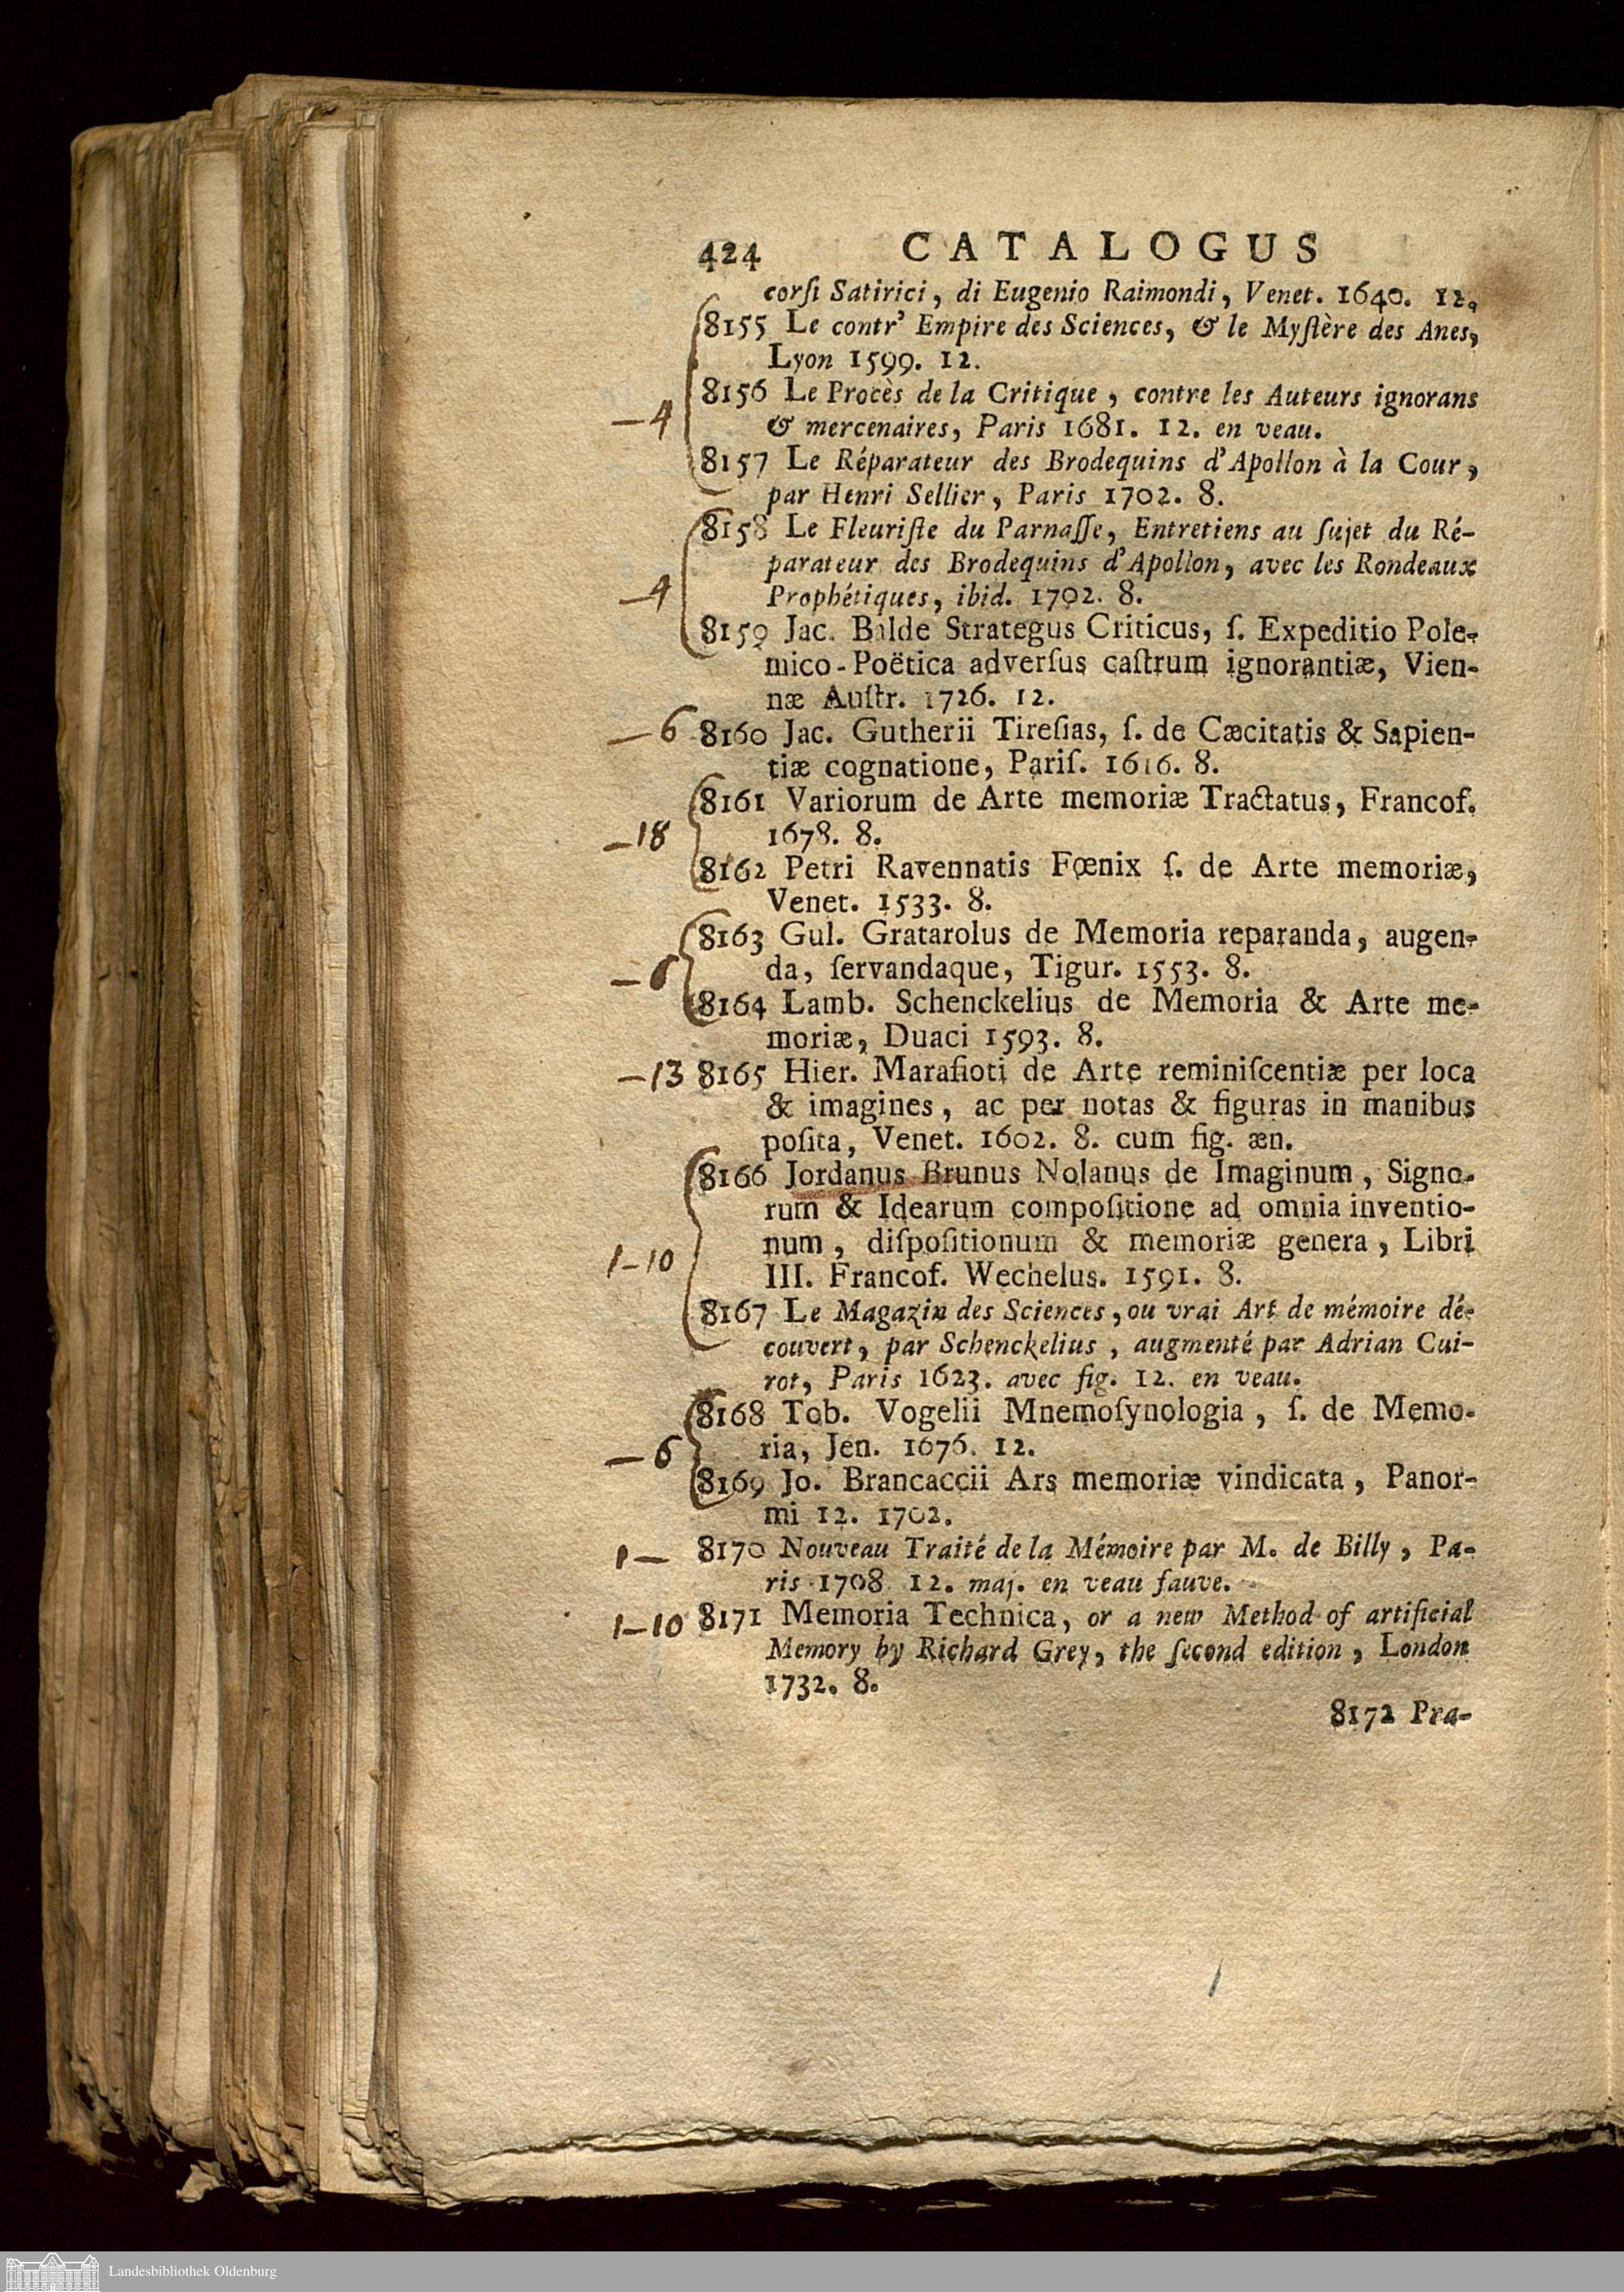 424 CATALOGUS
corſi Satirici, di Eugenio Raimondi, Venet. 1640. 12.
8155 Le contr' Empire des Sciences, & le Myſtère des Anes,
Lyon 1599. 12.
— 4 8156 Le Procès de la Critique, contre les Auteurs ignorans
& mercenaires, Paris 1681. 12. en veau.
8157 Le Réparateur des Brodequins d'Apollon à la Cour,
par Henri Sellier, Paris 1702. 8.
8158 Le Fleuriſte du Parnaſſe, Entretiens au ſujet du Ré-
parateur des Brodequins d'Apollon, avec les Rondeaux
— 4 Prophétiques, ibid. 1702. 8.
8159 Jac. Balde Strategus Criticus, ſ. Expeditio Pole-
mico-Poëtica adverſus caſtrum ignorantiæ, Vien-
næ Auſtr. 1726. 12.
— 6 8160 Jac. Gutherii Tireſias, ſ. de Cæcitatis & Sapien-
tiæ cognatione, Pariſ. 1616. 8.
8161 Variorum de Arte memoriæ Tractatus, Francof.
— 18 1678. 8.
8162 Petri Ravennatis Fœnix ſ. de Arte memoriæ,
Venet. 1533. 8.
8163 Gul. Gratarolus de Memoria reparanda, augen-
— 6 da, ſervandaque, Tigur. 1553. 8.
8164 Lamb. Schenckelius de Memoria & Arte me-
moriæ, Duaci 1593. 8.
— 13 8165 Hier. Marafioti de Arte reminiſcentiæ per loca
& imagines, ac per notas & figuras in manibus
poſita, Venet. 1602. 8. cum fig. æn.
8166 Jordanus Brunus Nolanus de Imaginum, Signo-
rum & Idearum compoſitione ad omnia inventio-
1 — 10 num, diſpoſitionum & memoriæ genera, Libri
III. Francof. Wechelus. 1591. 8.
8167 Le Magazin des Sciences, ou vrai Art de mémoire dé-
couvert, par Schenckelius, augmenté par Adrian Cui-
rot, Paris 1623. avec fig. 12. en veau.
8168 Tob. Vogelii Mnemoſynologia, ſ. de Memo-
— 6 ria, Jen. 1676. 12.
8169 Jo. Brancaccii Ars memoriæ vindicata, Panor-
mi 12. 1702.
1 — 8170 Nouveau Traité de la Mémoire par M. de Billy, Pa-
ris 1708 12. maj. en veau fauve.
1 — 10 8171 Memoria Technica, or a new Method of artificial
Memory by Richard Grey, the ſecond edition, London
1732. 8.
8172 Pra-
Landesbibliothek Oldenburg